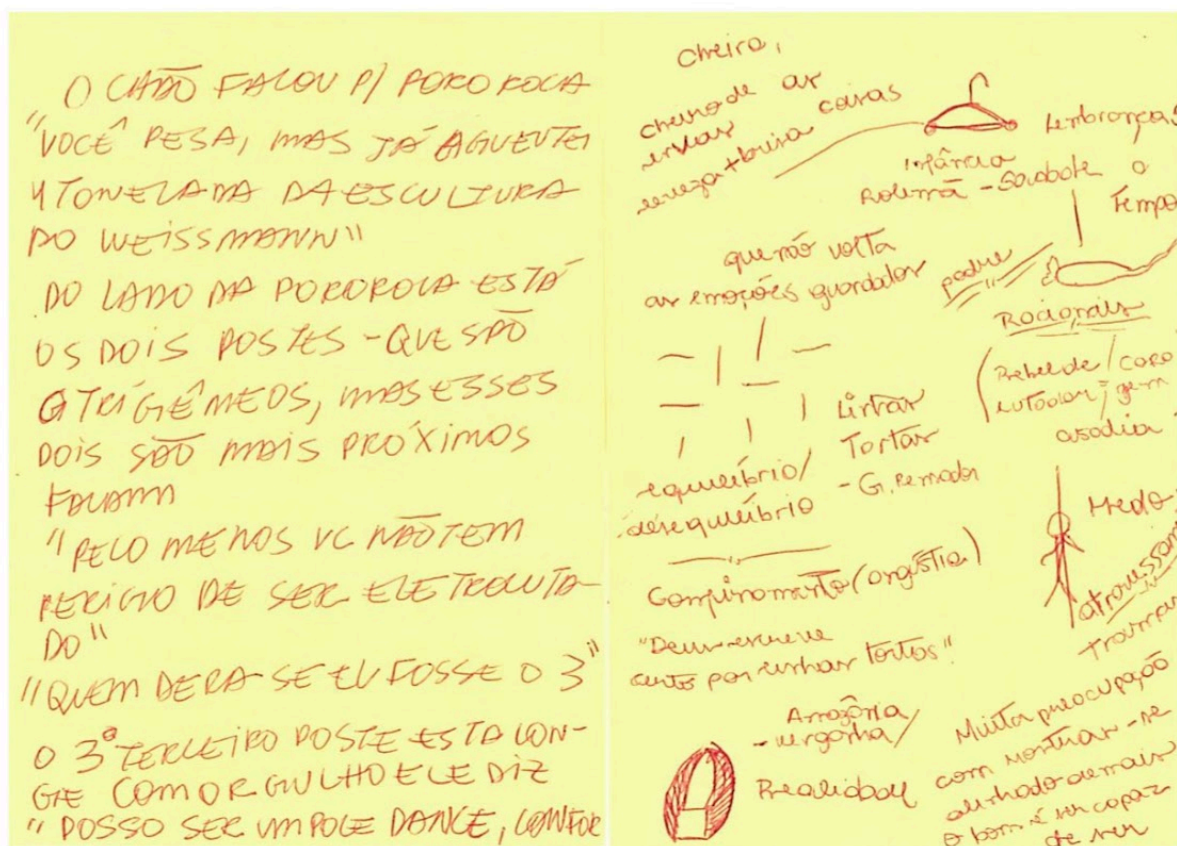 O CHÃO FALOU P/ POROROCA
"VOCÊ PESA, MAS JÁ AGUENTEI
4 TONELADA DA ESCULTURA
DO WEISSMANN"
DO LADO DA POROROCA ESTÁ
OS DOIS POSTES - QUE SÃO
TRIGÊMEOS, MAS ESSES
DOIS SÃO MAIS PRÓXIMOS
FALAM
"PELO MENOS VC NÃO TEM
PERIGO DE SER ELETROCUTA-
DO"
"QUEM DERA SE EU FOSSE O 3"
O 3º TERCEIRO POSTE ESTA LON-
GE COM ORGULHO ELE DIZ
"POSSO SER UM POLE DANCE, CONFOR
cheiro,
cheiro de as
coisas
lembranças
infância
Rolemã - Sarabote o
Tempo
que não volta
as emoções guardadas
padre
Racionais
Rebelde /
Linhas
Tortas
equilíbrio/
desequilíbrio
- G. Remador
Medo
(angústia)
atravessam
"Deus escreve
certo por linhas tortas"
- vergonha/
Realidade
Muita preocupação
com mostrar-se
demais
o bom é ser capaz
de ser